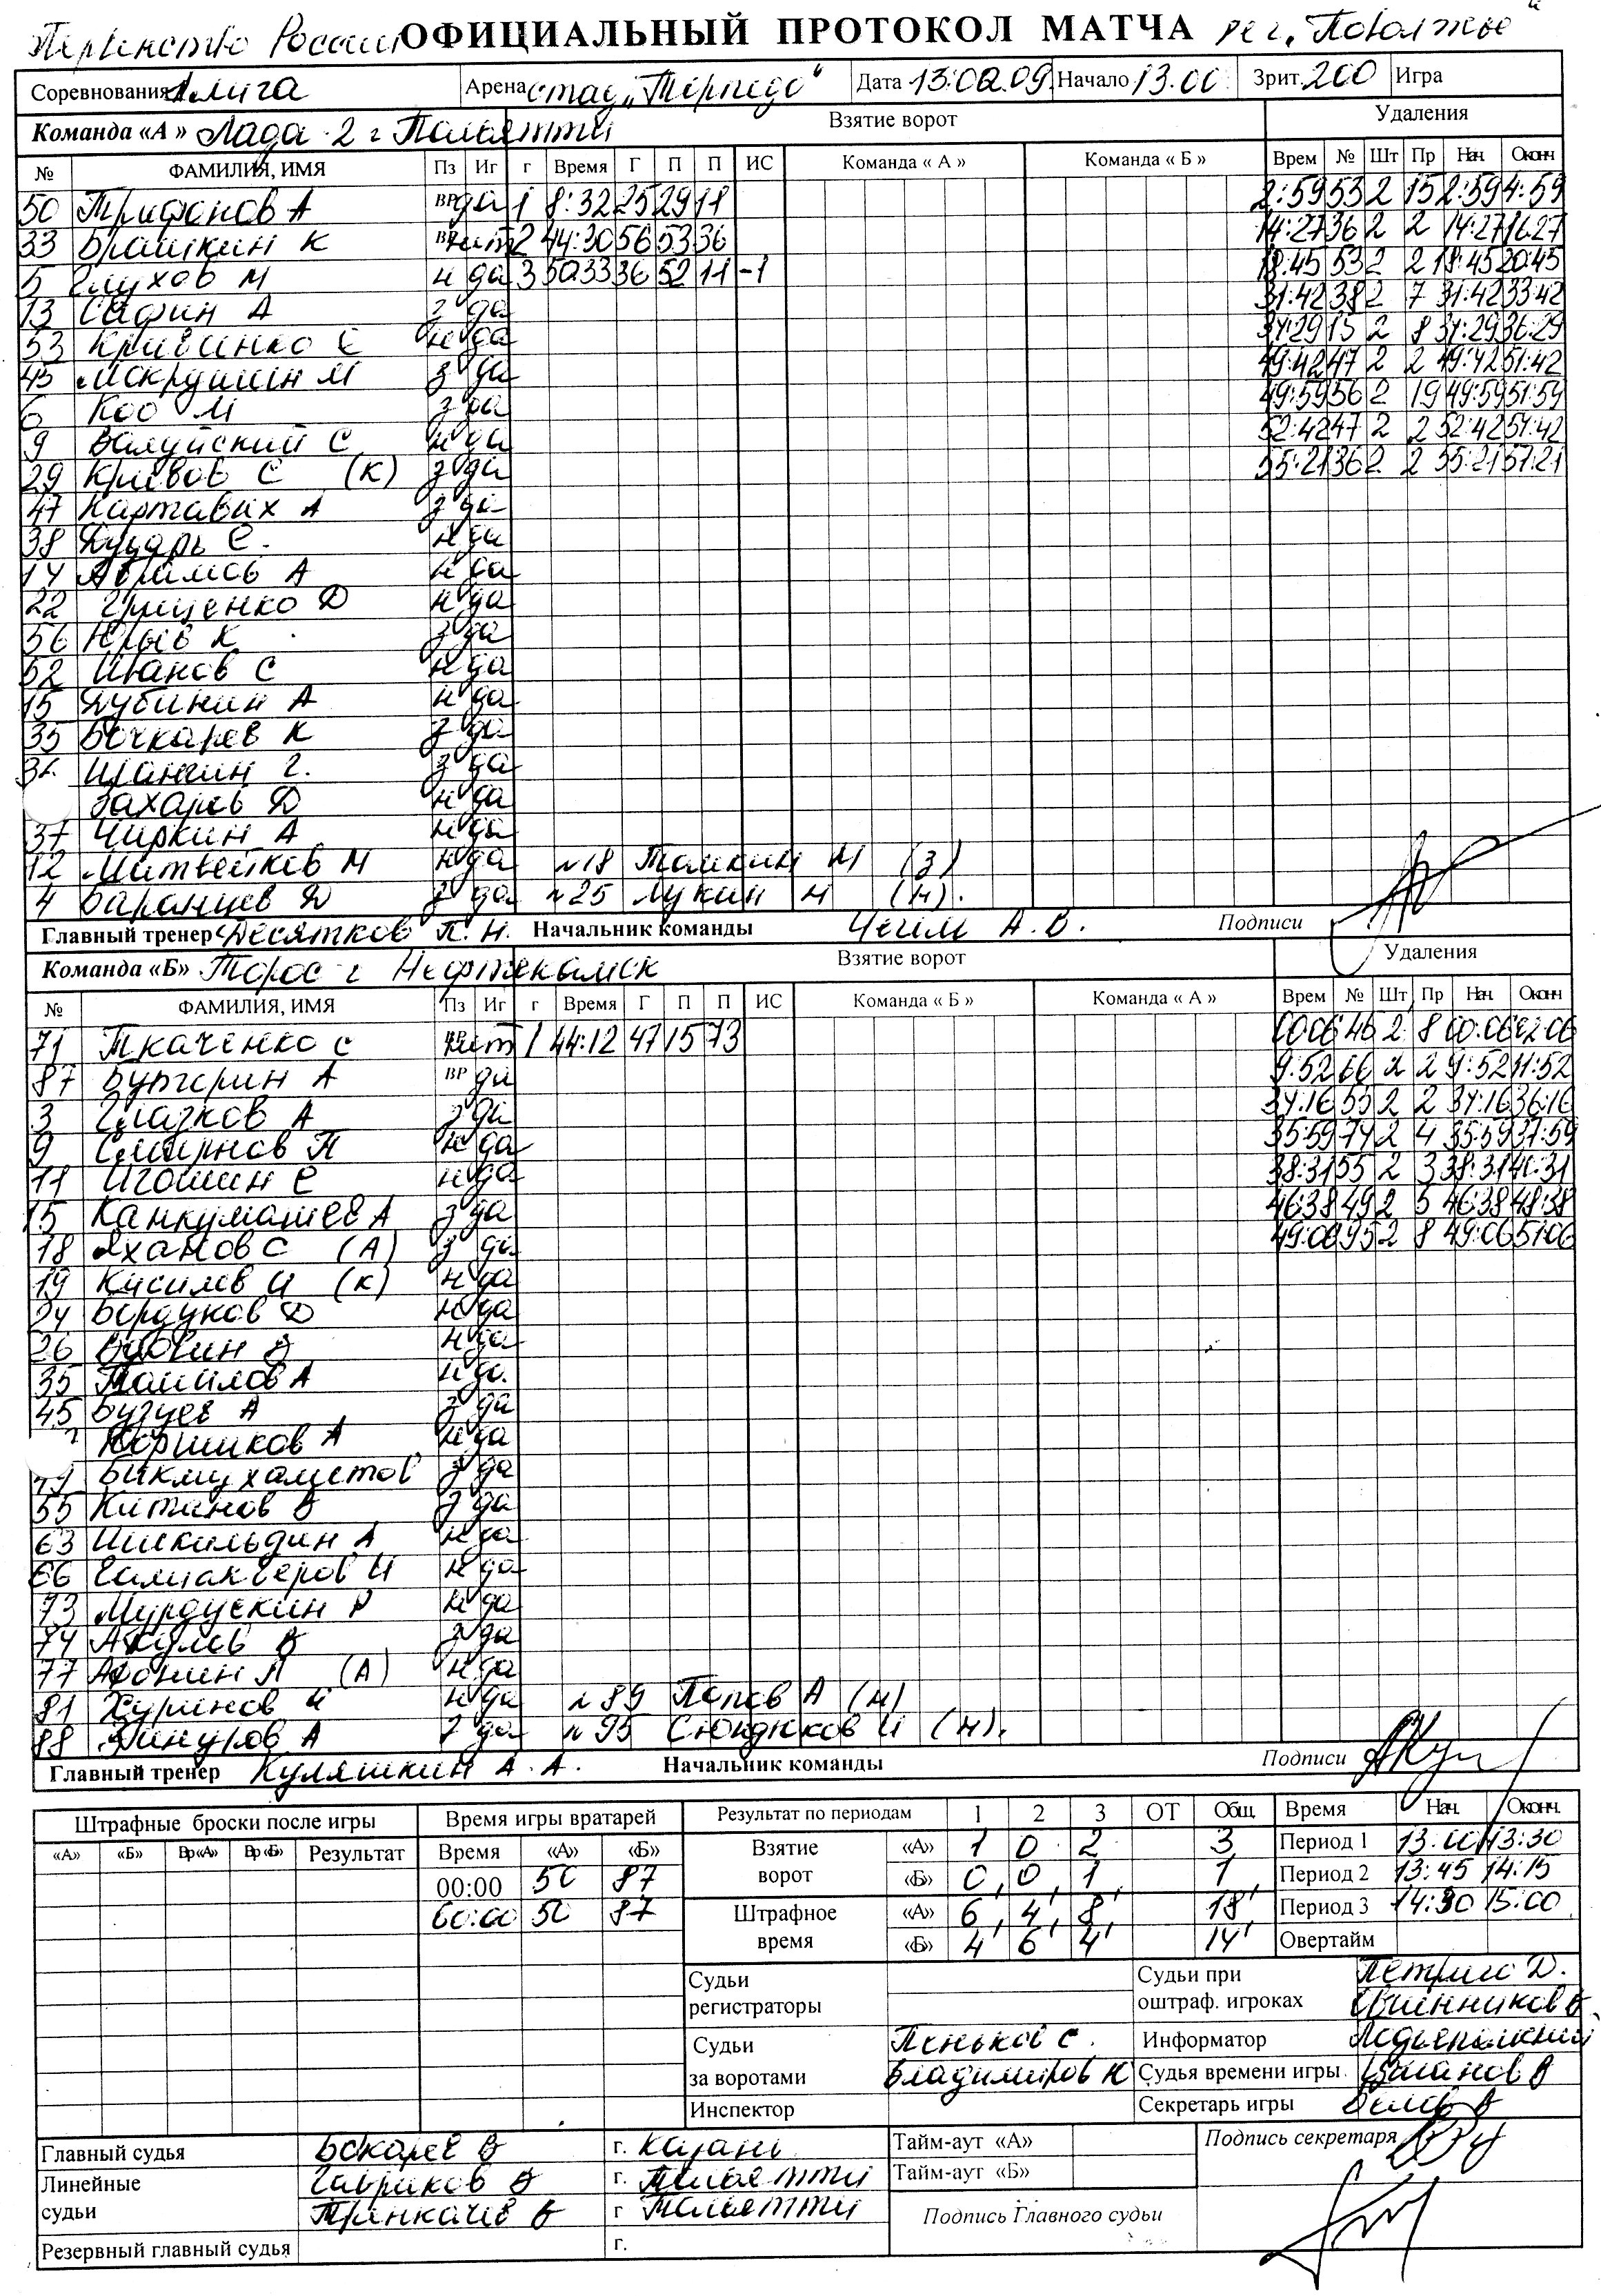 Первенство России ОФИЦИАЛЬНЫЙ ПРОТОКОЛ МАТЧА рег. "Поволжье"
Соревнования 1 лига Арена стад. "Торпедо" Дата 13.02.09 Начало 13.00 Зрит. 200 Игра
Команда «А» Лада-2 г Тольятти Взятие ворот Удаления
№ ФАМИЛИЯ, ИМЯ Пз Иг г Время Г П П ИС Команда « А » Команда « Б » Врем № Шт Пр Нач. Оконч
50 Трифонов А ВР да 1 8:32 25 29 11 2:59 53 2 15 2:59 4:59
33 Брашкин К ВР нет 2 44:30 56 53 36 14:27 36 2 2 14:27 16:27
5 Глухов М н да 3 50:33 36 52 11 -1 18:45 53 2 2 18:45 20:45
13 Сафин А з да 31:42 38 2 7 31:42 33:42
53 Кривенко Е н да 34:29 15 2 8 34:29 36:29
45 Мокрушин М з да 49:42 47 2 2 49:42 51:42
6 Коо М з да 49:59 56 2 19 49:59 51:59
9 Валуйский С н да 52:42 47 2 2 52:42 54:42
29 Кривов С (К) з да 55:21 36 2 2 55:21 57:21
47 Картавых А з да
38 Дударь Е. н да
14 Абрамов А н да
22 Гриценко Д н да
56 Юрьев К з да
52 Иванов С н да
15 Дубинин А н да
35 Бочкарев К з да
Шангин Г. з да
Захаров Д н да
37 Чиркин А н да
12 Матвейков М н да №18 Томкин М (з)
4 Баранцев Д з да №25 Лукин Н (н).
Главный тренер Десятков П.Н. Начальник команды Чеим А.В. Подписи
Команда «Б» Торос г Нефтекамск Взятие ворот Удаления
№ ФАМИЛИЯ, ИМЯ Пз Иг г Время Г П П ИС Команда « Б » Команда « А » Врем № Шт Пр Нач. Оконч
71 Ткаченко С ВР нет 1 44:12 47 15 73 00:06 45 2 8 00:06 02:06
87 Бухарин А ВР да 9:52 66 2 2 9:52 11:52
3 Глазков А з да 34:16 55 2 2 34:16 36:16
9 Смирнов П н да 35:59 74 2 4 35:59 37:59
11 Игошин Е н да 38:31 55 2 3 38:31 40:31
15 Канкумашев А з да 46:38 49 2 5 46:38 48:38
18 Яханов С (А) з да 49:06 95 2 8 49:06 51:06
19 Киселев И (К) н да
24 Бердуков Д н да
26 Вдовин В н да
35 Томилов А н да
45 Бугуев А з да
Коршиков А н да
49 Бикмухаметов з да
55 Китанов В з да
63 Ишкильдин А н да
66 Галиакберов И н да
73 Мурдускин Р н да
74 Акулов В з да
77 Афонин Л (А) н да
81 Хуринов И н да №89 Попов А (н)
88 Зинуров А з да №95 Сюндюков И (н).
Главный тренер Куляшкин А.А. Начальник команды Подписи
Штрафные броски после игры Время игры вратарей Результат по периодам 1 2 3 ОТ Общ. Время Нач. Оконч.
«А» «Б» Вр«А» Вр«Б» Результат Время «А» «Б» Взятие ворот «А» 1 0 2 3 Период 1 13:00 13:30
00:00 50 87 «Б» 0 0 1 1 Период 2 13:45 14:15
60:00 50 87 Штрафное время «А» 6 4 8 18 Период 3 14:30 15:00
«Б» 4 6 4 14 Овертайм
Судьи регистраторы Судьи при оштраф. игроках Петриго Д.
Судьи за воротами Пеньков С. Информатор
Владимиров К Судья времени игры Цаганов В
Инспектор Секретарь игры
Главный судья Бокарев В г. Казань Тайм-аут «А» Подпись секретаря
Линейные судьи Гавриков В г. Тольятти Тайм-аут «Б»
Транкачев В г Тольятти Подпись Главного судьи
Резервный главный судья г.